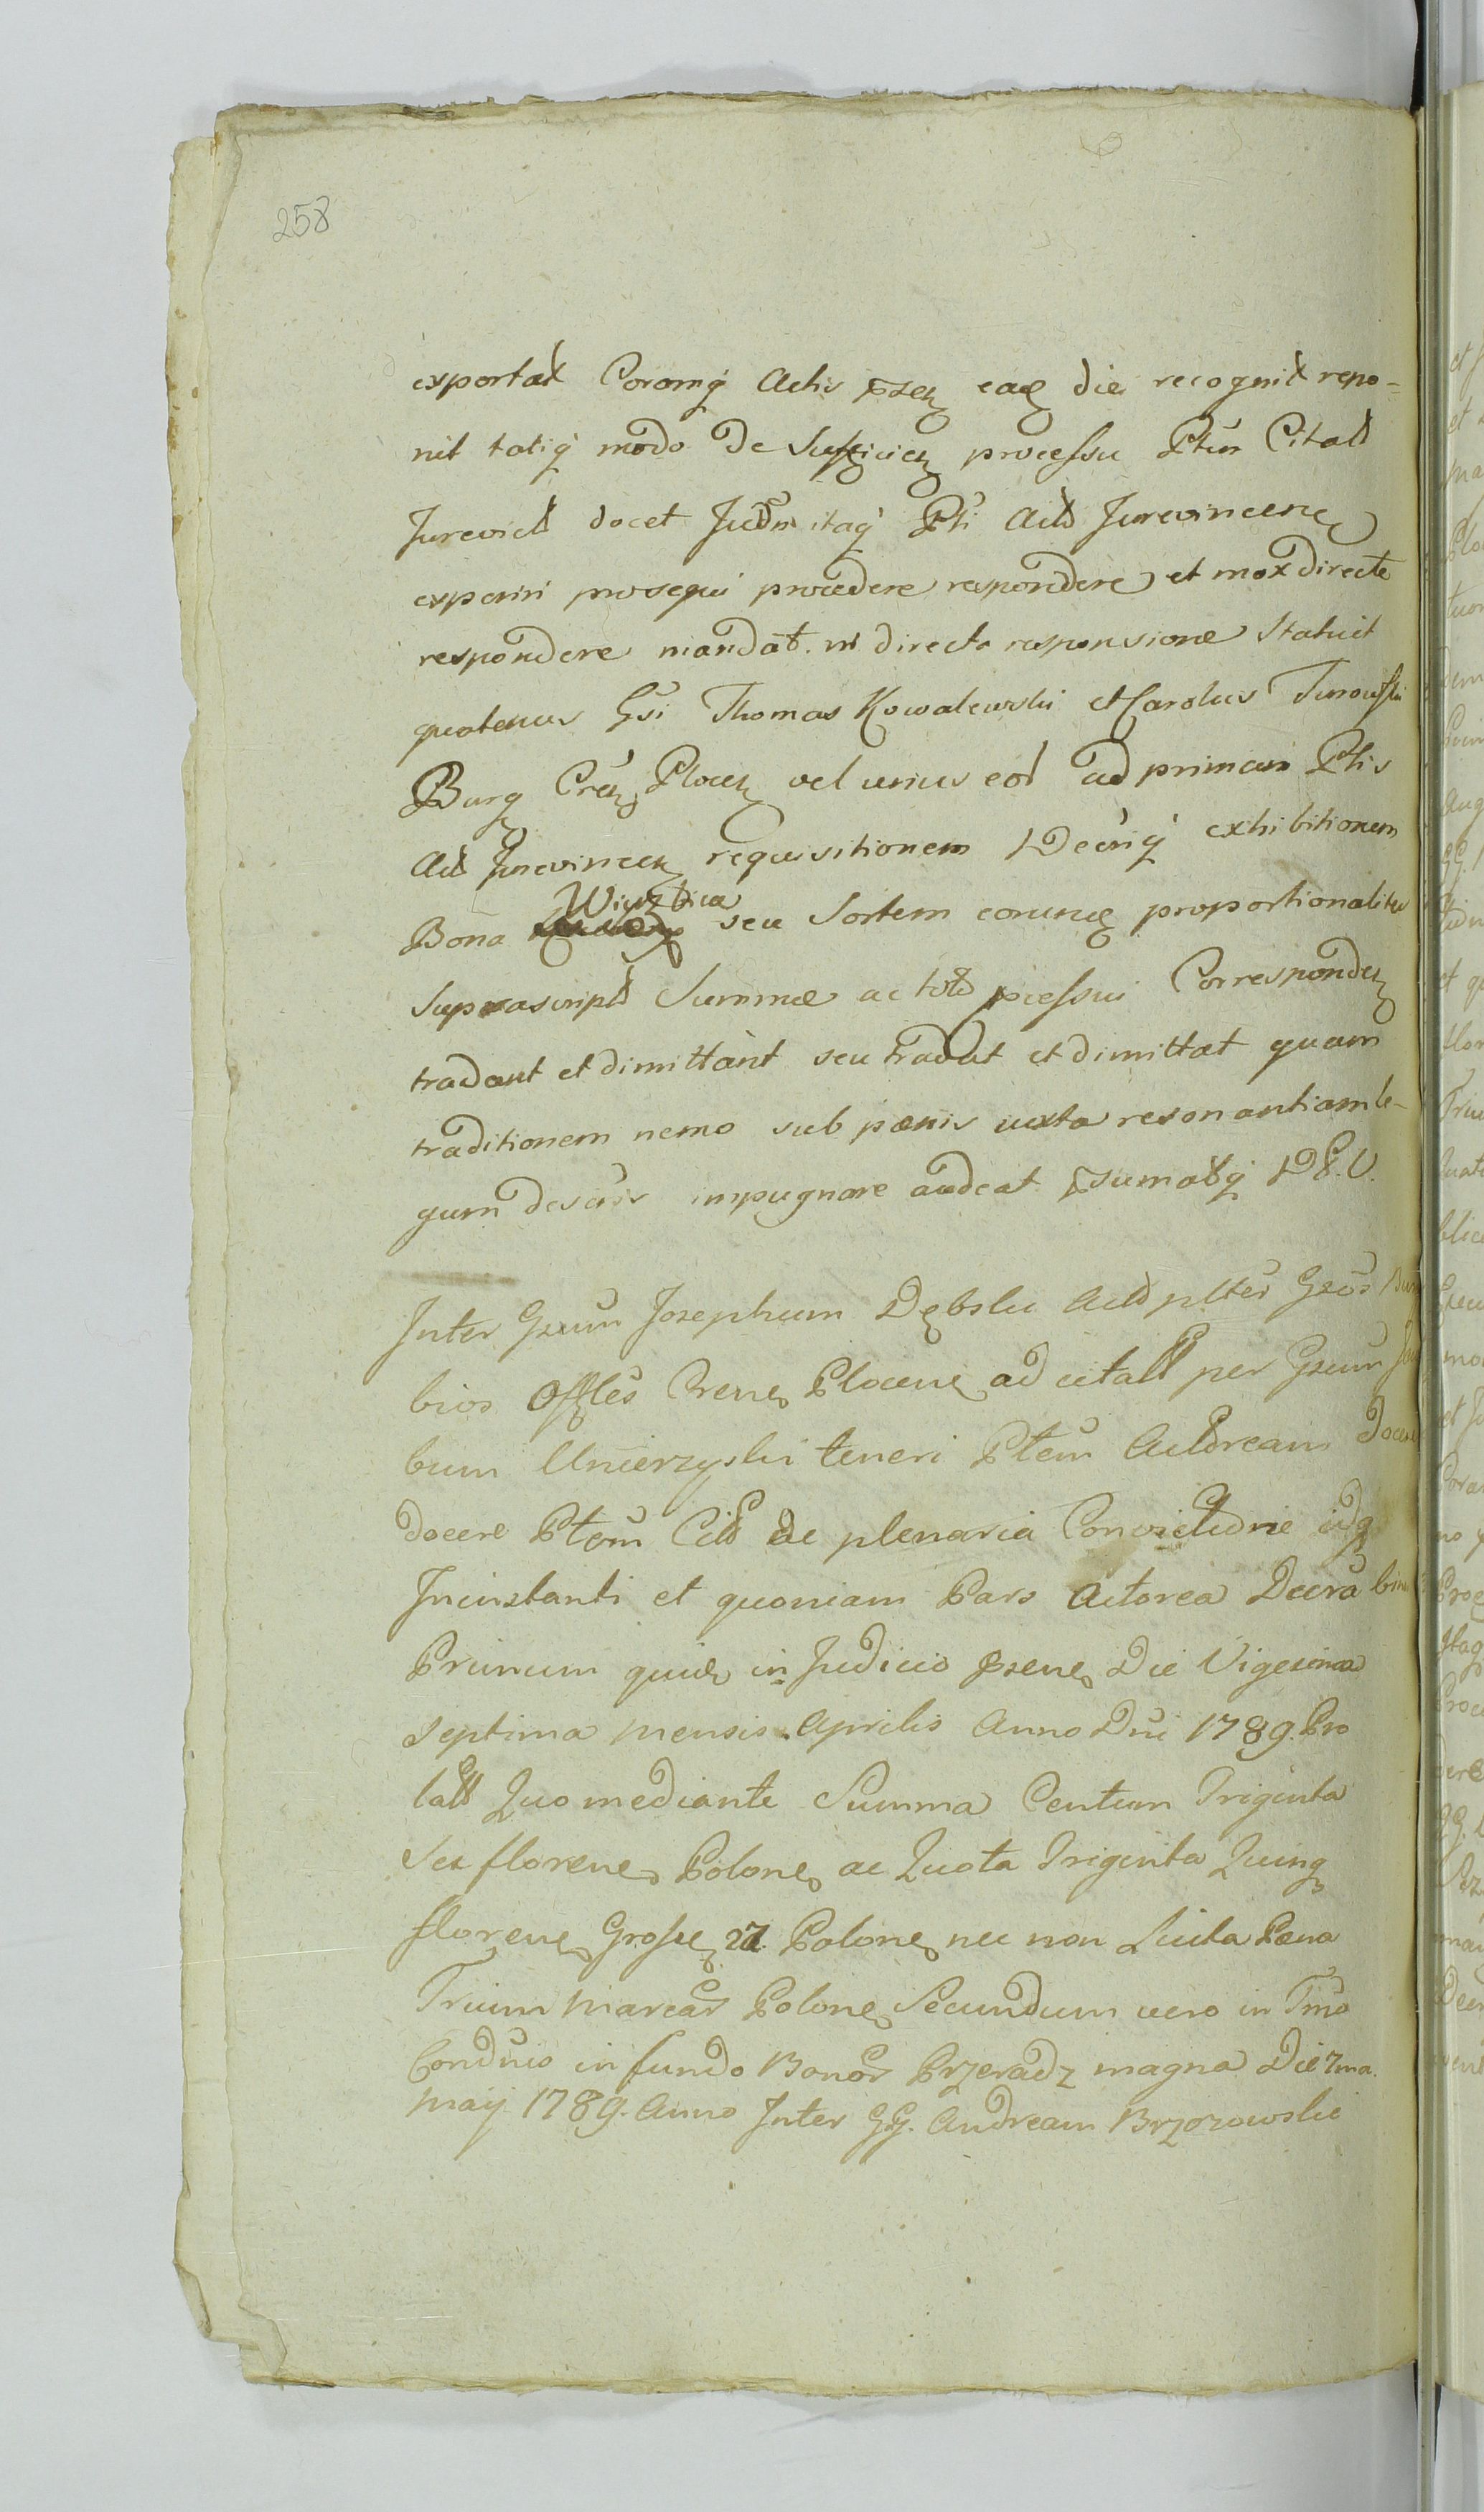 258
exportat Coramq Actis psen eaq die recognit repo-
nit taliq modo de Sufficien processu Ptem Citat
Jurevict docet Judm itaq Pti Act Jurevincen
experiri prosequi procedere respondere et mox directe
respondere mandat. in directa responsione Statuit
quatenus Gsi Thomas Kowalewski et Carolus Turowski
Burg Cren Plocen vel unus eor ad primam Ptis
Act Jurevincen requisitionem Decriq exhibitionem
Wierzbica
Bona seu Sortem earunq proportionaliter
Suprascript Summæ ac toti pcessui Corresponden
tradant et dimittant seu tradat et dimittat quam
traditionem nemo sub pænis juxta resonantiam le-
gum descris impugnare audeat psumatq DP.V.
Inter Gsum Josephum Dębski Act plter Gsos
bios Offles Crenes Plocene ad citatt per Gsum
bum Umierzyski teneri Ptem Actoream
docere Ptem Citt de plenaria Convictione idq
Ininstanti et quoniam Pars Actorea Decra bina
Primum quide in Judicio psene Die Vigesima
septima mensis Aprilis Anno Dni 1789. Pro
latt Quo mediante Summa Centum Triginta
Sex florene Polone ac Quota Triginta Quinq
florene Grosse 27. Polone nec non Luita Pæna
Trium marcar Polone Secundum vero in Tmo
Conducio in fundo Bonor Przeradz magna Die 7ma.
maij 1789. Anno Inter GG. Andream Brzozowski